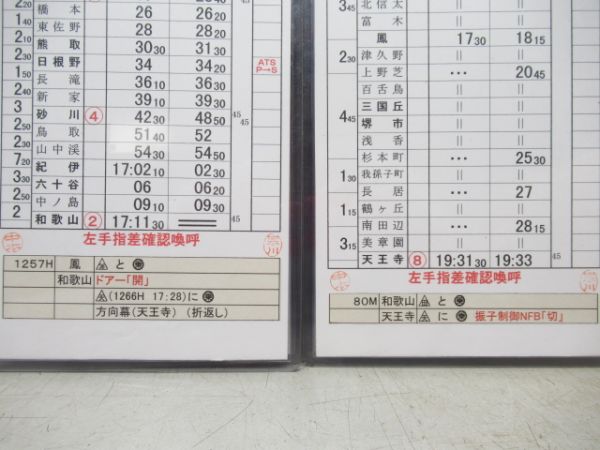 橋本 26 26 20
東佐野 28 28 20
熊取 30 30 31 30
日根野 34 34 20
長滝 36 10 36 50
新家 39 10 39 50
砂川 ④ 42 30 48 50 45
鳥取 51 40 52
山中渓 54 30 54 50
紀伊 17:02 10 02 30
六十谷 06 06 20
中ノ島 09 10 09 50
和歌山 ② 17:11 30 45
1 50
2 10
2 20
3
2 50
2 20
2 50
7 20
3 20
2 20
2
ATS
P→S
左手指差確認喚呼
1257H 鳳 と
和歌山 ドアー「開」
(1266H 17:28)に
方向幕(天王寺) (折返し)
3 45 北信太 〃 〃
富木 〃 〃
鳳 17 30 18 15
2 30 津久野 〃 〃
上野芝 … 20 45
百舌鳥 〃 〃
三国丘 〃 〃
4 45 堺市 〃 〃
浅香 〃 〃
杉本町 … 25 30
1 30 我孫子町 〃 〃
長居 … 27
1 15 鶴ヶ丘 〃 〃
南田辺 … 28 15
3 15 美章園 〃 〃
天王寺 ⑧ 19:31 30 19:33 45
左手指差確認喚呼
80M 和歌山 と
天王寺 に 振子制御NFB「切」